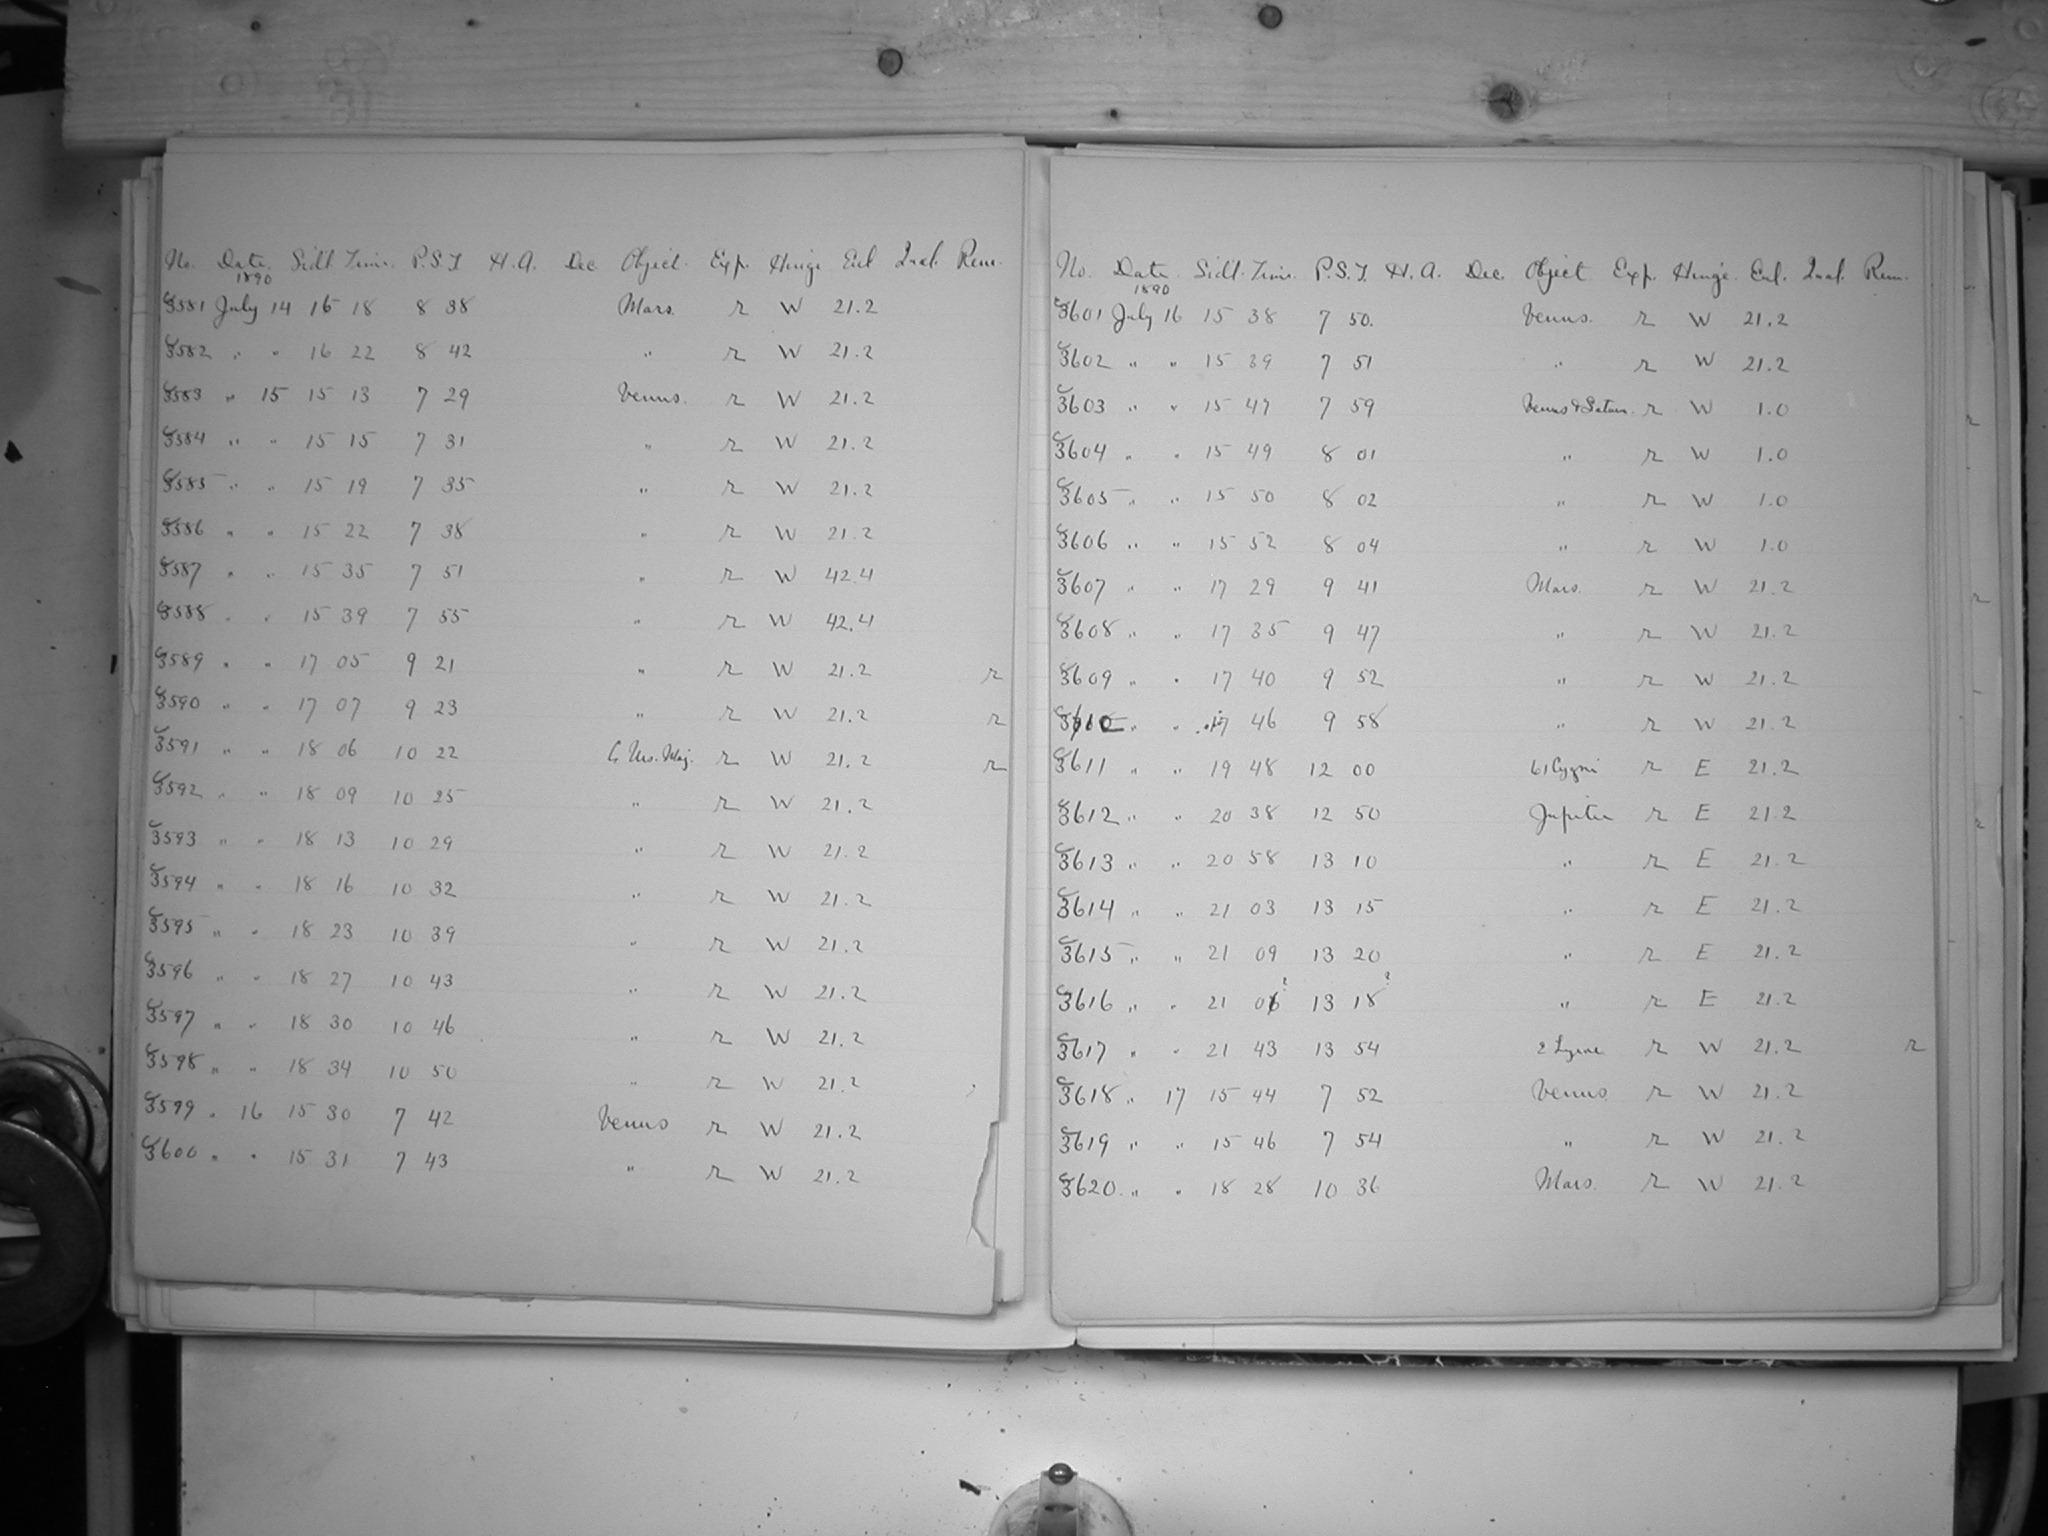 No. Date. Sidl. Time. P.S.T. H.A. Dec. Object. Exp. Hinge Enl. Qual. Rem.
1890
3581 July 14 16 18 8 38 Mars. r W 21.2
3582 " " 16 22 8 42 " r W 21.2
3583 " 15 15 13 7 29 Venus. r W 21.2
3584 " " 15 15 7 31 " r W 21.2
3585 " " 15 19 7 35 " r W 21.2
3586 " " 15 22 7 38 " r W 21.2
3587 " " 15 35 7 51 " r W 42.4
3588 " " 15 39 7 55 " r W 42.4
3589 " " 17 05 9 21 " r W 21.2 r
3590 " " 17 07 9 23 " r W 21.2 r
3591 " " 18 06 10 22 ζ Urs. Maj. r W 21.2 r
3592 " " 18 09 10 25 " r W 21.2
3593 " " 18 13 10 29 " r W 21.2
3594 " " 18 16 10 32 " r W 21.2
3595 " " 18 23 10 39 " r W 21.2
3596 " " 18 27 10 43 " r W 21.2
3597 " " 18 30 10 46 " r W 21.2
3598 " " 18 34 10 50 " r W 21.2
3599 " 16 15 30 7 42 Venus r W 21.2
3600 " " 15 31 7 43 " r W 21.2
No. Date. Sidl. Time. P.S.T. H.A. Dec. Object Exp. Hinge. Enl. Qual. Rem.
1890
3601 July 16 15 38 7 50. Venus. r W 21.2
3602 " " 15 39 7 51 " r W 21.2
3603 " " 15 47 7 59 Venus & Saturn. r W 1.0
3604 " " 15 49 8 01 " r W 1.0
3605 " " 15 50 8 02 " r W 1.0
3606 " " 15 52 8 04 " r W 1.0
3607 " " 17 29 9 41 Mars. r W 21.2
3608 " " 17 35 9 47 " r W 21.2
3609 " " 17 40 9 52 " r W 21.2
3610 " " 17 46 9 58 " r W 21.2
3611 " " 19 48 12 00 61 Cygni r E 21.2
3612 " " 20 38 12 50 Jupiter r E 21.2
3613 " " 20 58 13 10 " r E 21.2
3614 " " 21 03 13 15 " r E 21.2
3615 " " 21 09 13 20 " r E 21.2
3616 " " 21 06? 13 18? " r E 21.2
3617 " " 21 43 13 54 ε Lyrae r W 21.2 r
3618 " 17 15 44 7 52 Venus. r W 21.2
3619 " " 15 46 7 54 " r W 21.2
3620. " " 18 28 10 36 Mars. r W 21.2